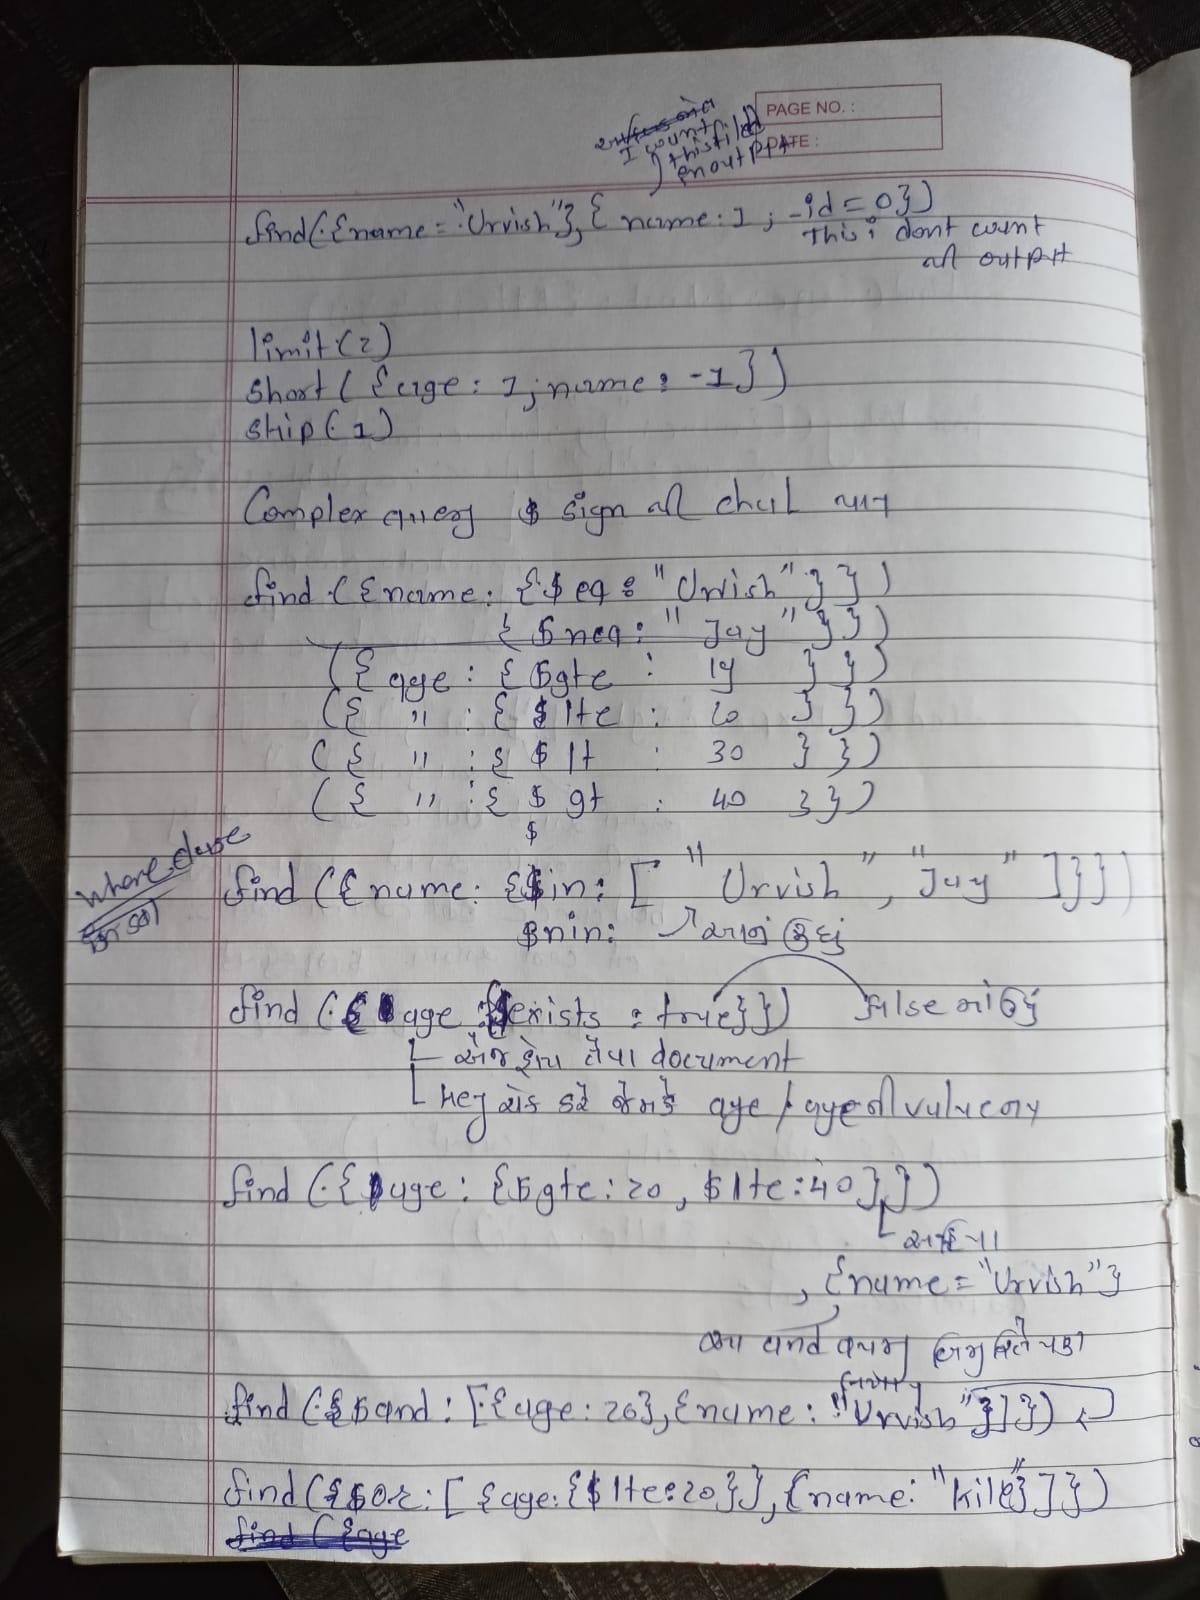 PAGE NO. :
DATE :
I count
this field
on output
find({name="Urvish"}, { name:1, _id=0})
This: dont count
output
limit(2)
short({age: 1, name: -1})
skip(1)
Complex query $ sign થી ચાલુ થાય
find ({name: {$eq: "Urvish"}})
{$neq: "Jay"}})
({age: {$gte : 19 }})
({ " : { $lte : 20 }})
({ " : { $ lt : 30 }})
({ " : { $ gt : 40 }})
$
where clause
find ({name: {$in: [ "Urvish", "Jay" ]}})
$nin:
find ({age : {$exists : true}}) false
એજ હોય તેવા document
age / age ની value
find ({age: {$gte:20, $lte:40}})
, {name="Urvish"}
find ({$and: [{age:20}, {name: "Urvish"}]})
find ({$or: [ {age: {$lte:20}}, {name: "kile"}]})
find ({age